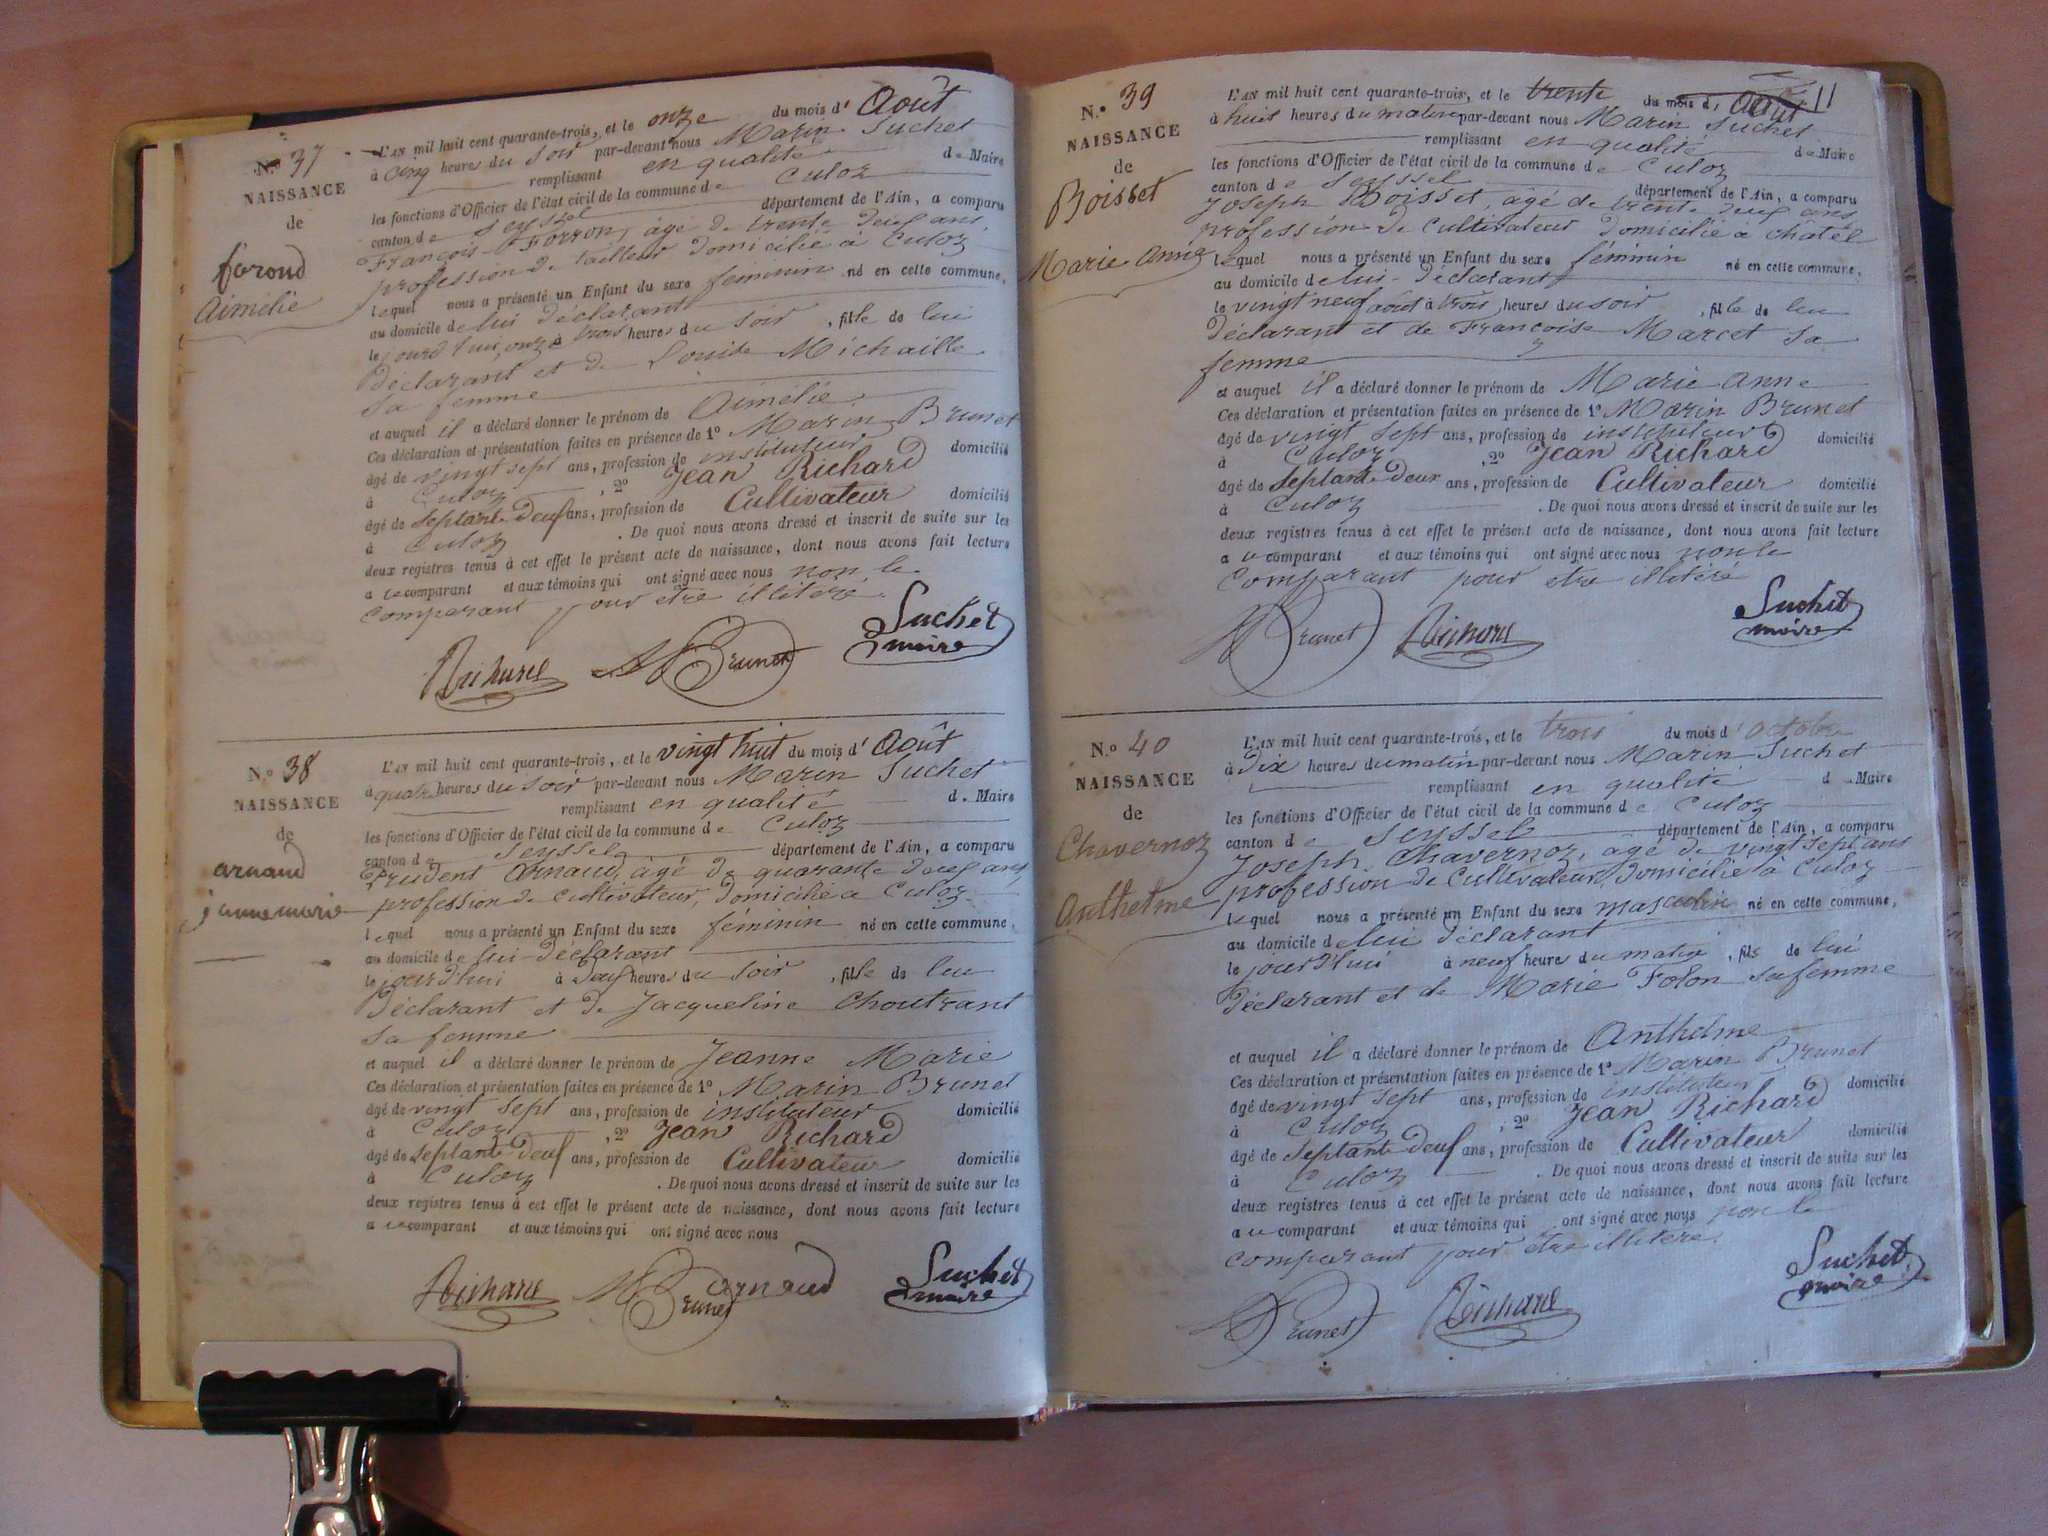 N.º 37
NAISSANCE
de
Aimélie
L'AN mil huit cent quarante-trois, et le onze du mois d' Août
à cinq heures du soir par-devant nous Marin Suchet
remplissant en qualité de Maire
les fonctions d'Officier de l'état civil de la commune de Culoz
canton de Seyssel département de l'Ain, a comparu
François âgé de trente deux ans,
profession de tailleur domicilié à Culoz
lequel nous a présenté un Enfant du sexe féminin né en cette commune,
au domicile de lui déclarant
le jourd'hui onze à trois heures du soir, fille de lui
déclarant et de Louise Michaille
sa femme
et auquel il a déclaré donner le prénom de Aimélie
Ces déclaration et présentation faites en présence de 1º Marin Brunet
âgé de vingt sept ans, profession de instituteur domicilié
à Culoz, 2º Jean Richard
âgé de septante deux ans, profession de Cultivateur domicilié
à Culoz. De quoi nous avons dressé et inscrit de suite sur les
deux registres tenus à cet effet le présent acte de naissance, dont nous avons fait lecture
a u comparant et aux témoins qui ont signé avec nous non le
comparant pour etre illitéré.
Richard Brunet Suchet
maire
N.º 38
NAISSANCE
de
arnaud
jannemarie
L'AN mil huit cent quarante-trois, et le vingt huit du mois d' Août
à quatre heures du soir par-devant nous Marin Suchet
remplissant en qualité de Maire
les fonctions d'Officier de l'état civil de la commune de Culoz
canton de Seyssel département de l'Ain, a comparu
Prudent Arnaud, âgé de quarante deux ans,
profession de cultivateur, domicilié a Culoz
lequel nous a présenté un Enfant du sexe féminin né en cette commune,
au domicile de lui déclarant
le jourd'hui à deux heures du soir, fille de lui
déclarant et de Jacqueline Choutrant
sa femme
et auquel il a déclaré donner le prénom de Jeanne Marie
Ces déclaration et présentation faites en présence de 1º Marin Brunet
âgé de vingt sept ans, profession de instituteur domicilié
à Culoz, 2º Jean Richard
âgé de septante deux ans, profession de Cultivateur domicilié
à Culoz. De quoi nous avons dressé et inscrit de suite sur les
deux registres tenus à cet effet le présent acte de naissance, dont nous avons fait lecture
a u comparant et aux témoins qui ont signé avec nous
Richard Brunet arnaud Suchet
maire
11
N.º 39
NAISSANCE
de
Boisset
Marie Anne
L'AN mil huit cent quarante-trois, et le trente du mois d' Août
à huit heures du matin par-devant nous Marin Suchet
remplissant en qualité de Maire
les fonctions d'Officier de l'état civil de la commune de Culoz
canton de Seyssel département de l'Ain, a comparu
Joseph Boisset, âgé de trente deux ans,
profession de Cultivateur domicilié a chatel
lequel nous a présenté un Enfant du sexe féminin né en cette commune,
au domicile de lui déclarant
le vingt neuf août à trois heures du soir, fille de lui
déclarant et de Françoise Marcet sa
femme
et auquel il a déclaré donner le prénom de Marie Anne
Ces déclaration et présentation faites en présence de 1º Marin Brunet
âgé de vingt sept ans, profession de instituteur domicilié
à Culoz, 2º Jean Richard
âgé de septante deux ans, profession de Cultivateur domicilié
à Culoz. De quoi nous avons dressé et inscrit de suite sur les
deux registres tenus à cet effet le présent acte de naissance, dont nous avons fait lecture
a u comparant et aux témoins qui ont signé avec nous non le
comparant pour etre illitéré
Brunet Richard Suchet
maire
N.º 40
NAISSANCE
de
Chavernoz
Anthelme
L'AN mil huit cent quarante-trois, et le trois du mois d' octobre
à dix heures du matin par-devant nous Marin Suchet
remplissant en qualité d Maire
les fonctions d'Officier de l'état civil de la commune de Culoz
canton de Seyssel département de l'Ain, a comparu
Joseph Chavernoz, âgé de vingt sept ans
profession de Cultivateur, domicilié à Culoz
lequel nous a présenté un Enfant du sexe masculin né en cette commune,
au domicile de lui déclarant
le jourd'hui à neuf heures du matin, fils de lui
déclarant et de Marie Folon sa femme
et auquel il a déclaré donner le prénom de Anthelme
Ces déclaration et présentation faites en présence de 1º Marin Brunet
âgé de vingt sept ans, profession de instituteur domicilié
à Culoz, 2º Jean Richard
âgé de septante deux ans, profession de Cultivateur domicilié
à Culoz. De quoi nous avons dressé et inscrit de suite sur les
deux registres tenus à cet effet le présent acte de naissance, dont nous avons fait lecture
a u comparant et aux témoins qui ont signé avec nous non le
comparant pour etre illitéré.
Brunet Richard Suchet
maire